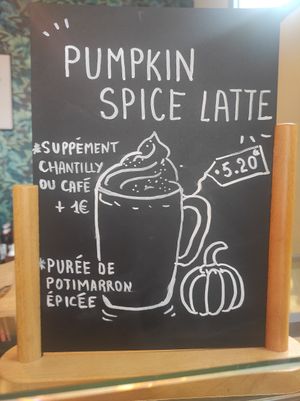 PUMPKIN
SPICE LATTE
*SUPPÉMENT
CHANTILLY
OU CAFÉ
+ 1€
5.20€
*PURÉE DE
POTIMARRON
ÉPICÉE